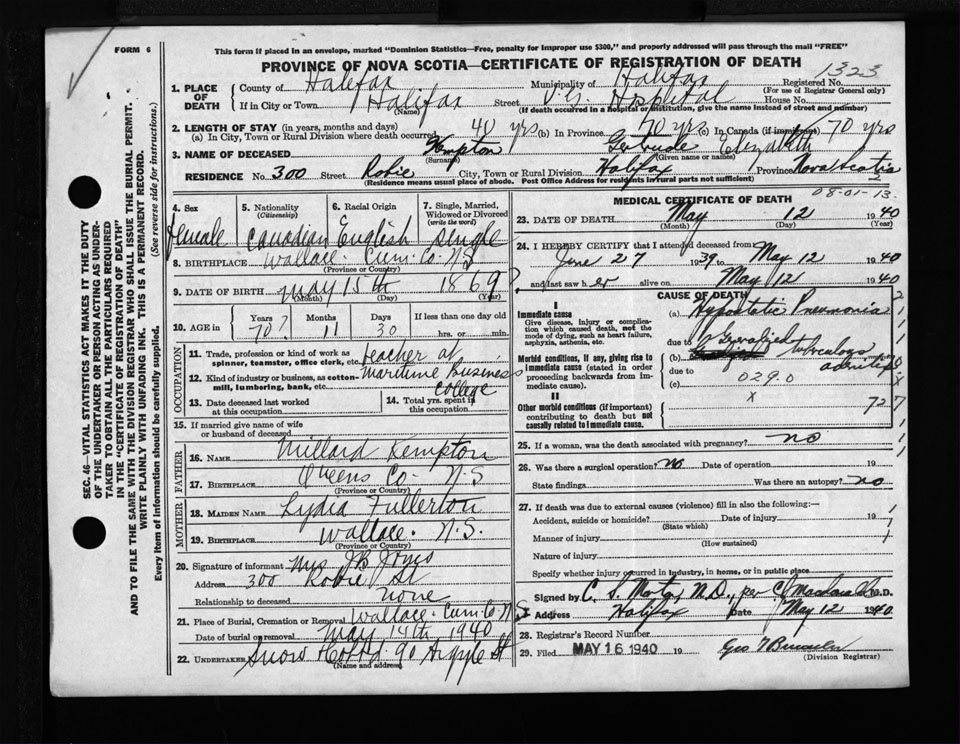 FORM 6
This form if placed in an envelope, marked "Dominion Statistics—Free, penalty for improper use $300," and properly addressed will pass through the mail "FREE"
PROVINCE OF NOVA SCOTIA—CERTIFICATE OF REGISTRATION OF DEATH
1323
1. PLACE OF DEATH { County of Halifax Municipality of Halifax Registered No.
(For use of Registrar General only)
If in City or Town Halifax Street V.G. Hospital House No.
(Name) (If death occurred in a hospital or institution, give the name instead of street and number)
2. LENGTH OF STAY (in years, months and days)
(a) In City, Town or Rural Division where death occurred 40 yrs (b) In Province 70 yrs (c) In Canada (if immigrant) 70 yrs
3. NAME OF DECEASED Kempton Gertrude Elizabeth
(Surname) (Given name or names)
RESIDENCE No. 300 Street Robie City, Town or Rural Division Halifax Province Nova Scotia
(Residence means usual place of abode. Post Office Address for residents in rural parts not sufficient)
4. Sex female
5. Nationality (Citizenship) Canadian
6. Racial Origin English
7. Single, Married, Widowed or Divorced (write the word) Single
8. BIRTHPLACE Wallace. Cum. Co. N.S
(Province or Country)
9. DATE OF BIRTH May 15th 1869?
(Month) (Day) (Year)
10. AGE in Years 70? Months 11 Days 30 If less than one day old hrs. or min.
OCCUPATION
11. Trade, profession or kind of work as spinner, teamster, office clerk, etc. teacher at
12. Kind of industry or business, as cotton-mill, lumbering, bank, etc. Maritime business College
13. Date deceased last worked at this occupation
14. Total yrs. spent in this occupation
15. If married give name of wife or husband of deceased
FATHER
16. NAME Millard Kempton
17. BIRTHPLACE Queens Co N.S
(Province or Country)
MOTHER
18. MAIDEN NAME Lydia Fullerton
19. BIRTHPLACE Wallace. N.S.
(Province or Country)
20. Signature of informant Mrs J B Jones
Address 300 Robie St
Relationship to deceased none
21. Place of Burial, Cremation or Removal Wallace. Cum. Co N.S
Date of burial or removal May 14th 1940
22. UNDERTAKER Snow 90 Argyle St
08-01-13.
2
MEDICAL CERTIFICATE OF DEATH
23. DATE OF DEATH May 12 1940
(Month) (Day) (Year)
24. I HEREBY CERTIFY that I attended deceased from
June 27 1939 to May 12 1940
and last saw her alive on May 12 1940
CAUSE OF DEATH
I
Immediate cause
Give disease, injury or complication which caused death, not the mode of dying, such as heart failure, asphyxia, asthenia, etc.
(a) Hypostatic Pneumonia
due to
Morbid conditions, if any, giving rise to immediate cause (stated in order proceeding backwards from immediate cause).
(b) Generalized tuberculous adenitis
due to
(c) 029.0
X
II
Other morbid conditions (if important) contributing to death but not causally related to immediate cause.
727
25. If a woman, was the death associated with pregnancy? no
26. Was there a surgical operation? no Date of operation 19
State findings Was there an autopsy? no
27. If death was due to external causes (violence) fill in also the following:—
Accident, suicide or homicide? Date of injury 19
(State which)
Manner of injury
(How sustained)
Nature of injury
Specify whether injury occurred in industry, in home, or in public place
Signed by C. S. Morton M.D., per M.D.
Address Halifax Date May 12 1940
28. Registrar's Record Number
29. Filed MAY 16 1940 19
(Division Registrar)
SEC. 46—VITAL STATISTICS ACT MAKES IT THE DUTY OF THE UNDERTAKER OR PERSON ACTING AS UNDERTAKER TO OBTAIN ALL THE PARTICULARS REQUIRED IN THE "CERTIFICATE OF REGISTRATION OF DEATH" AND TO FILE THE SAME WITH THE DIVISION REGISTRAR WHO SHALL ISSUE THE BURIAL PERMIT.
WRITE PLAINLY WITH UNFADING INK. THIS IS A PERMANENT RECORD.
Every item of information should be carefully supplied. (See reverse side for instructions.)